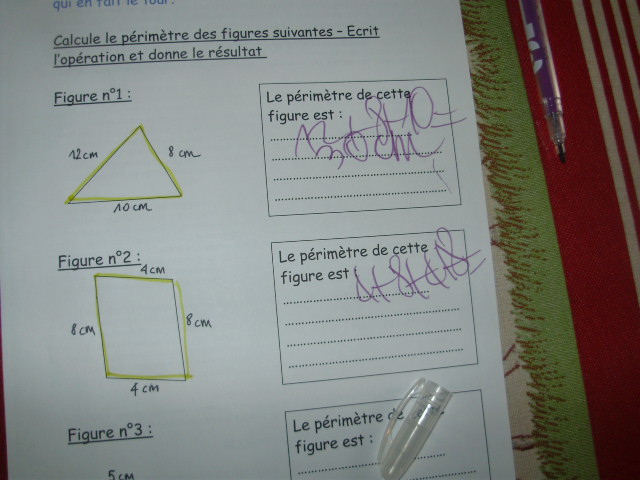 qui en fait le tour.
Calcule le périmètre des figures suivantes - Ecrit
l'opération et donne le résultat
Figure n°1 :
12cm
8 cm
10cm
Le périmètre de cette
figure est :
cm
Figure n°2 :
4cm
8cm
8cm
4 cm
Le périmètre de cette
figure est
Figure n°3 :
5cm
Le périmètre de
figure est :